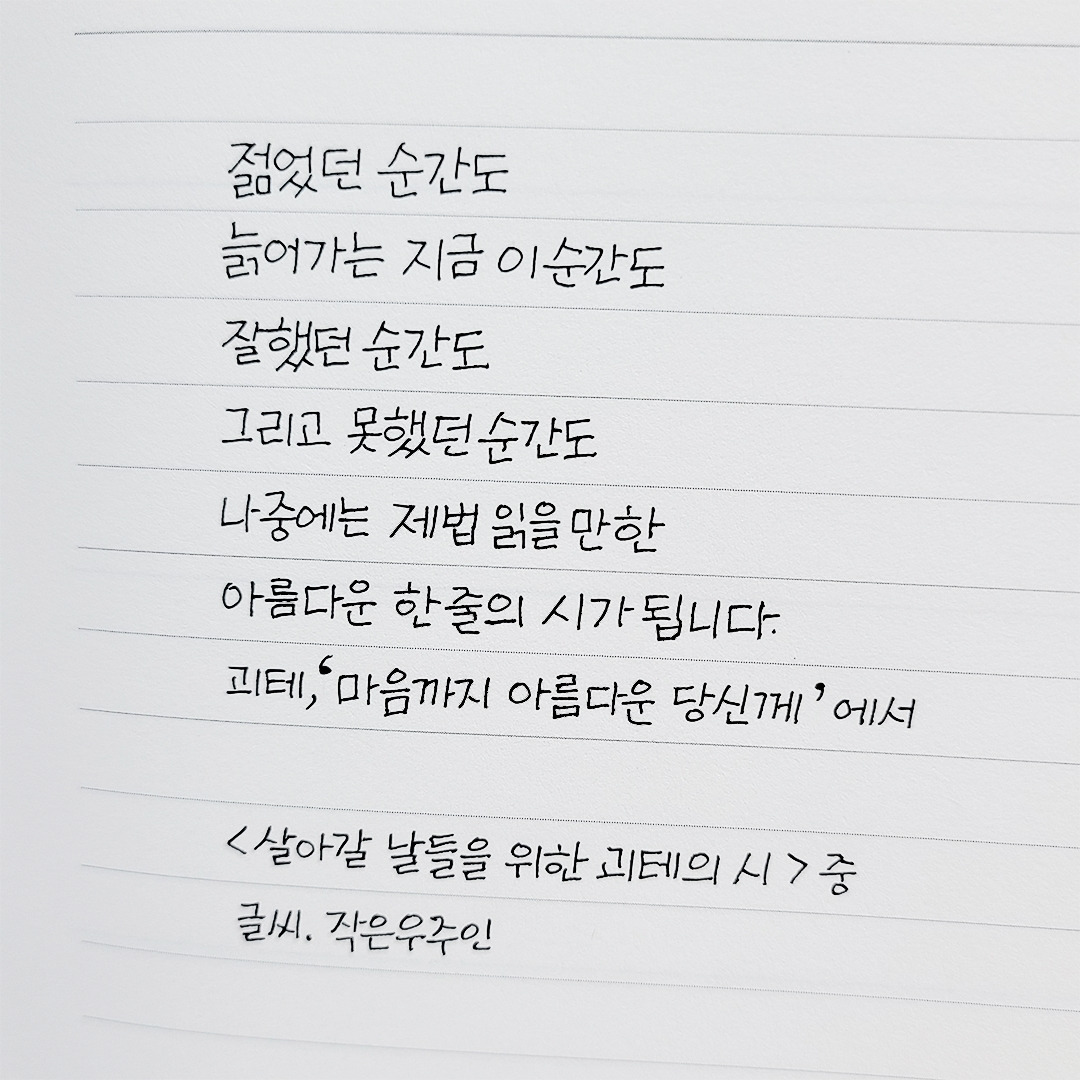 젊었던 순간도
늙어가는 지금 이 순간도
잘했던 순간도
그리고 못했던 순간도
나중에는 제법 읽을 만한
아름다운 한 줄의 시가 됩니다.
괴테, ‘마음까지 아름다운 당신께’에서
<살아갈 날들을 위한 괴테의 시> 중
글씨. 작은우주인